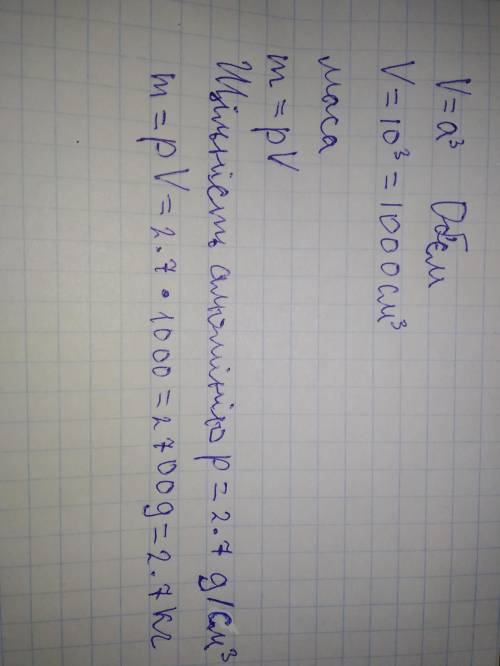 V = a³ Обєм
V = 10³ = 1000 см³
маса
m = pV
Щільність алюмінію p = 2.7 g/см³
m = pV = 2.7 • 1000 = 2700g = 2.7 кг